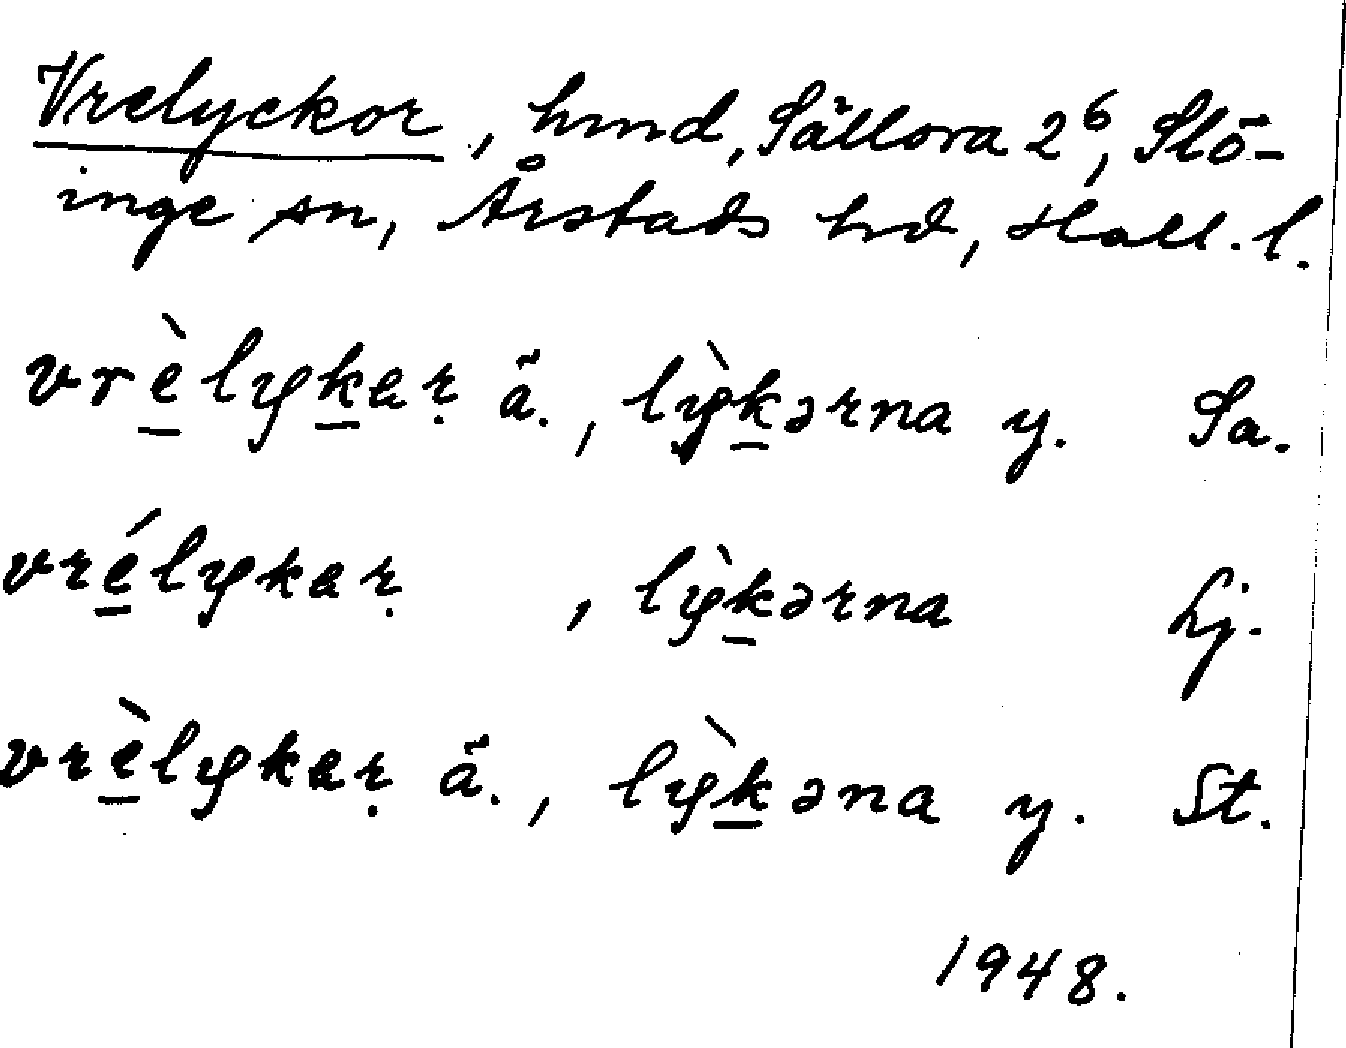 Vrelyckor, hmd, Sällsra 2⁶, Slö-
inge sn, Årstads hd, Hall. l.
vrèlykar̤ ä., lỳkərna y. Sa.
vrélykar̤ , lỳkərna Lj.
vrèlykar̤ ä., lỳkəna y. St.
1948.